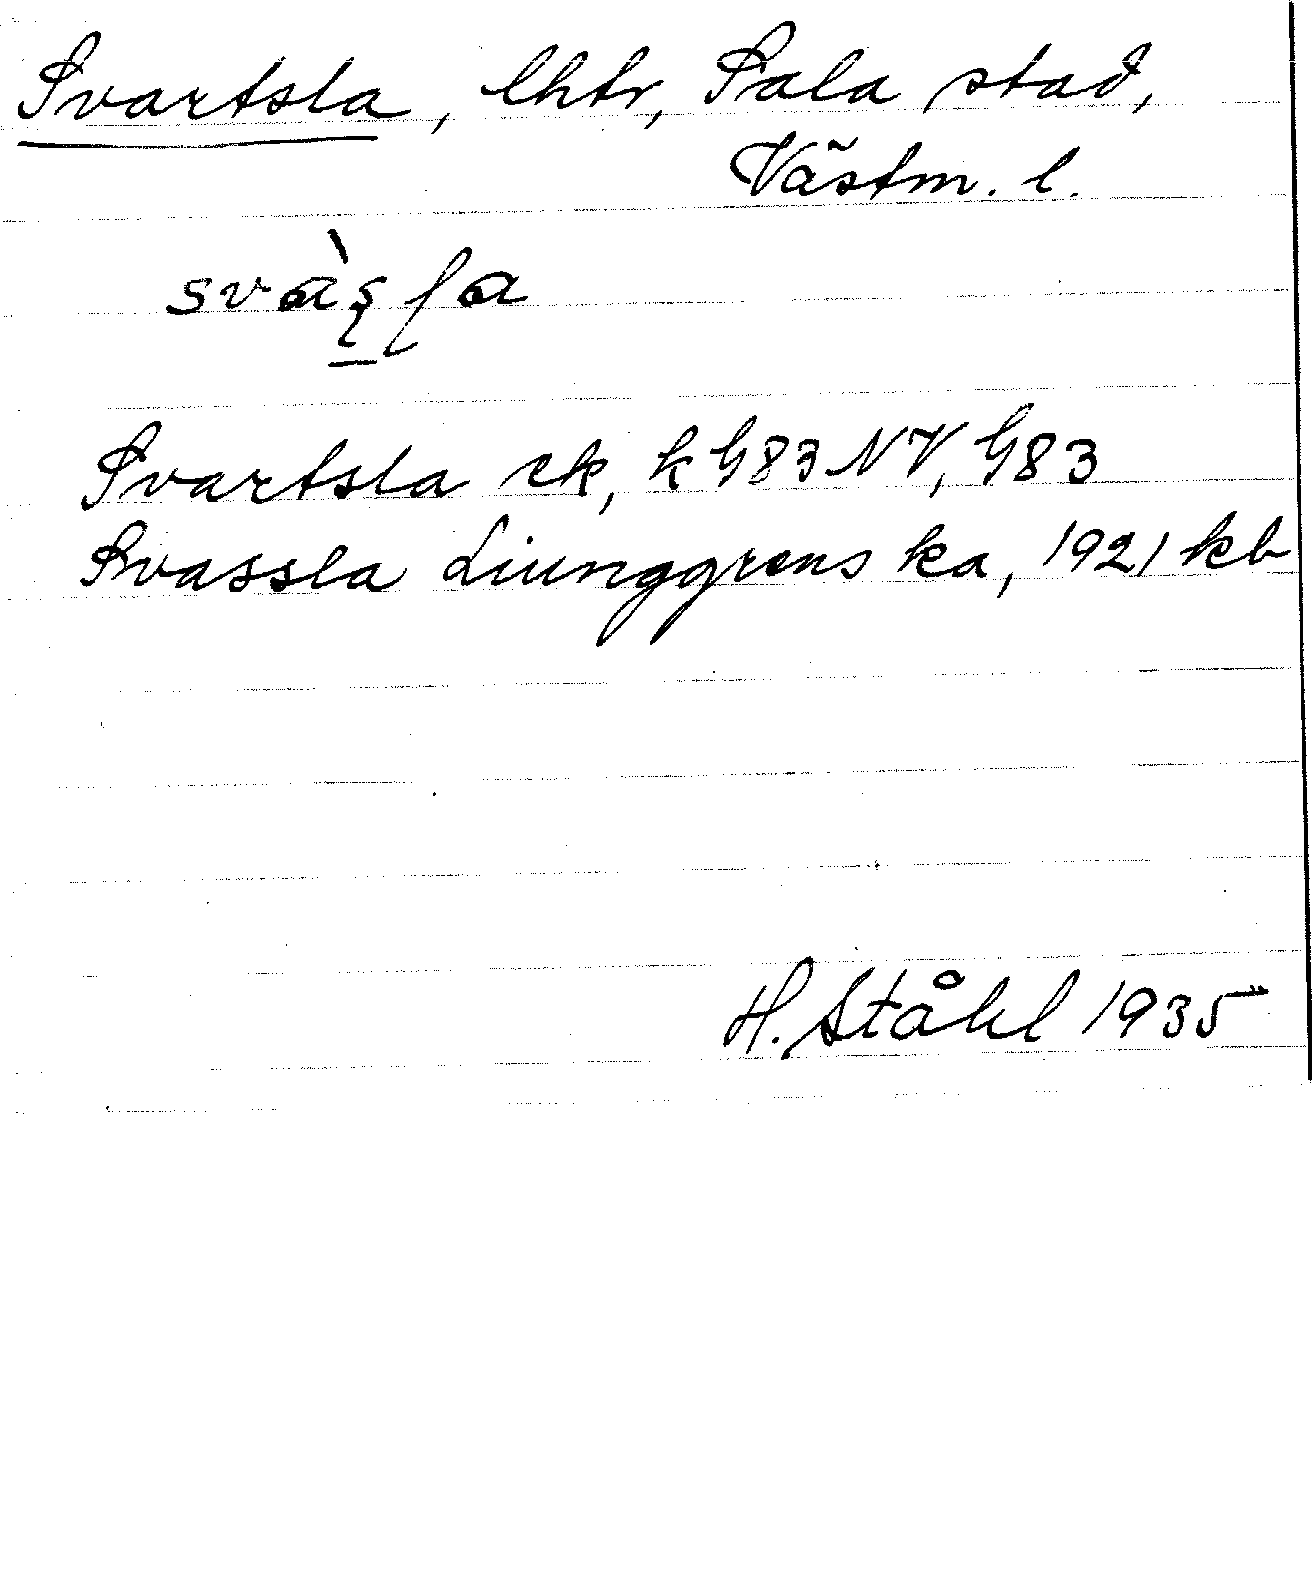 Svartsla, lhtr, Sala stad,
Västm. l.
Svartsla ek, k G83 NV, G83
Svassla Liunggrens ka, 1921 kb
H. Ståhl 1935